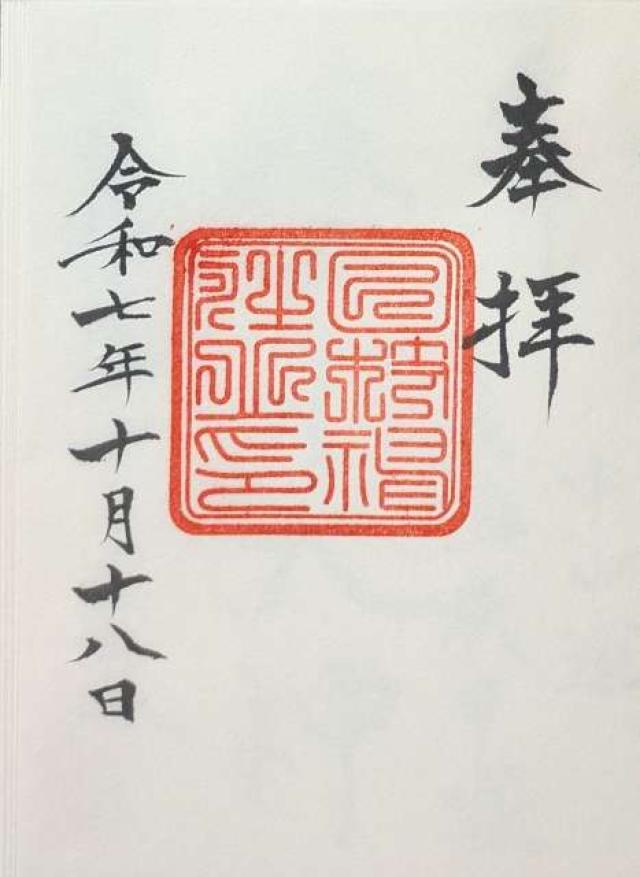 奉拝
令和七年十月十八日